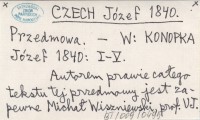 CZECH Józef 1840.
Przedmowa. — W: KONOPKA
Józef 1840: I-V.
Autorem prawie całego
tekstu tej przedmowy jest za-
pewne Michał Wiszniewski, prof. UJ.